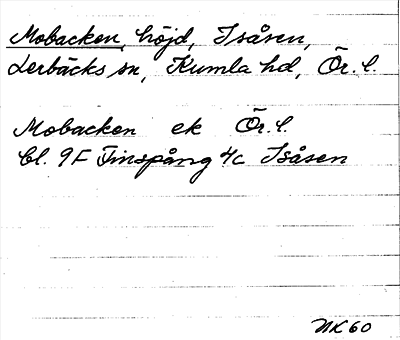 Mobacken, höjd, Isåsen,
Lerbäcks sn, Kumla hd, Ör. l.
Mobacken ek Ör. l.
Bl. 9F Finspång 4c Isåsen
NK 60